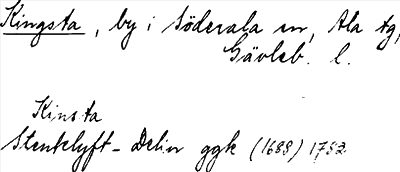 Kingsta, by i Söderala sn, Ala tg,
Gävleb. l.
Kinsta
Stenklyft - Delin ggk (1688) 1752